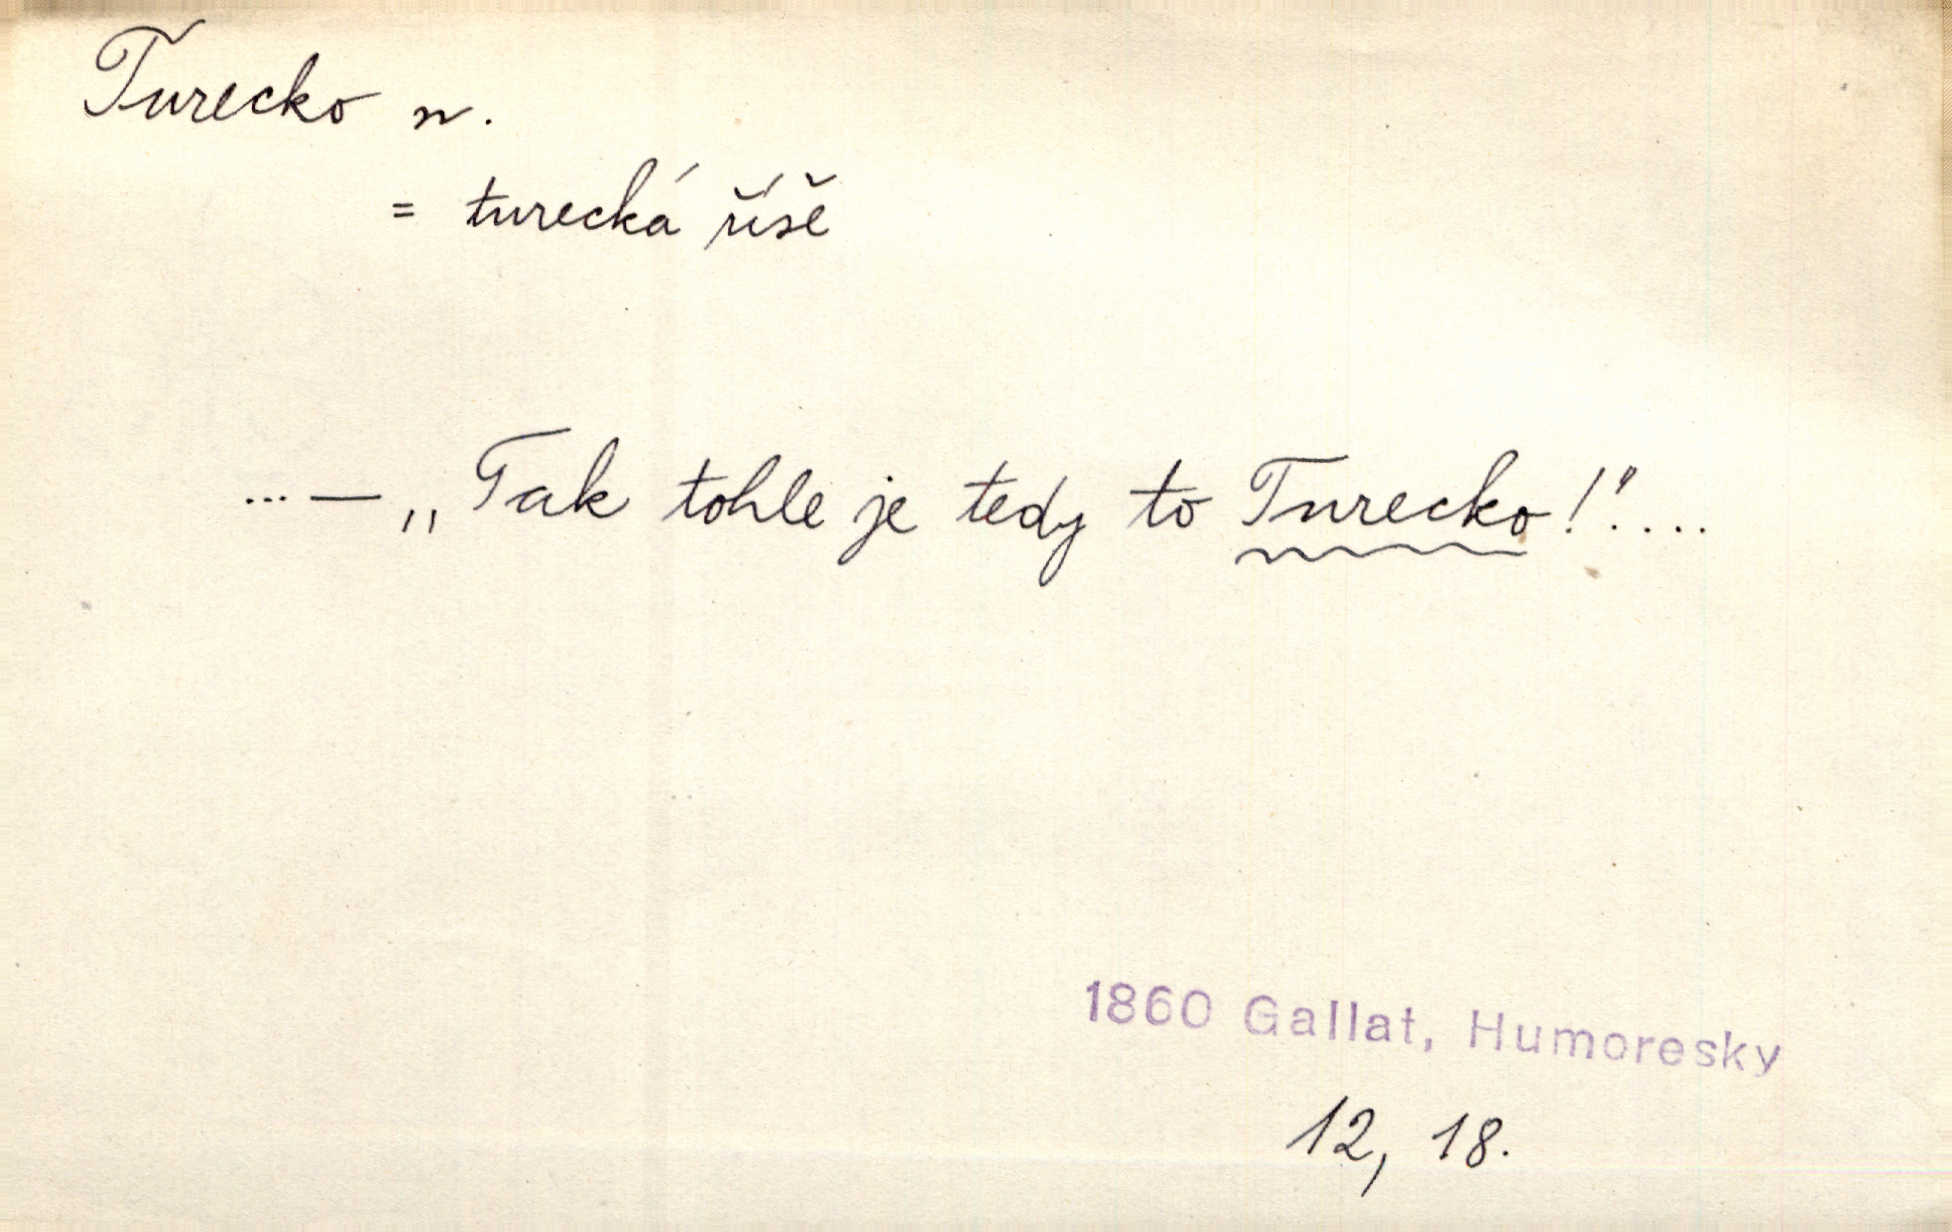 Turecko n.
= turecká říše
... — „Tak tohle je tedy to Turecko!"....
1860 Gallat, Humoresky
12, 18.